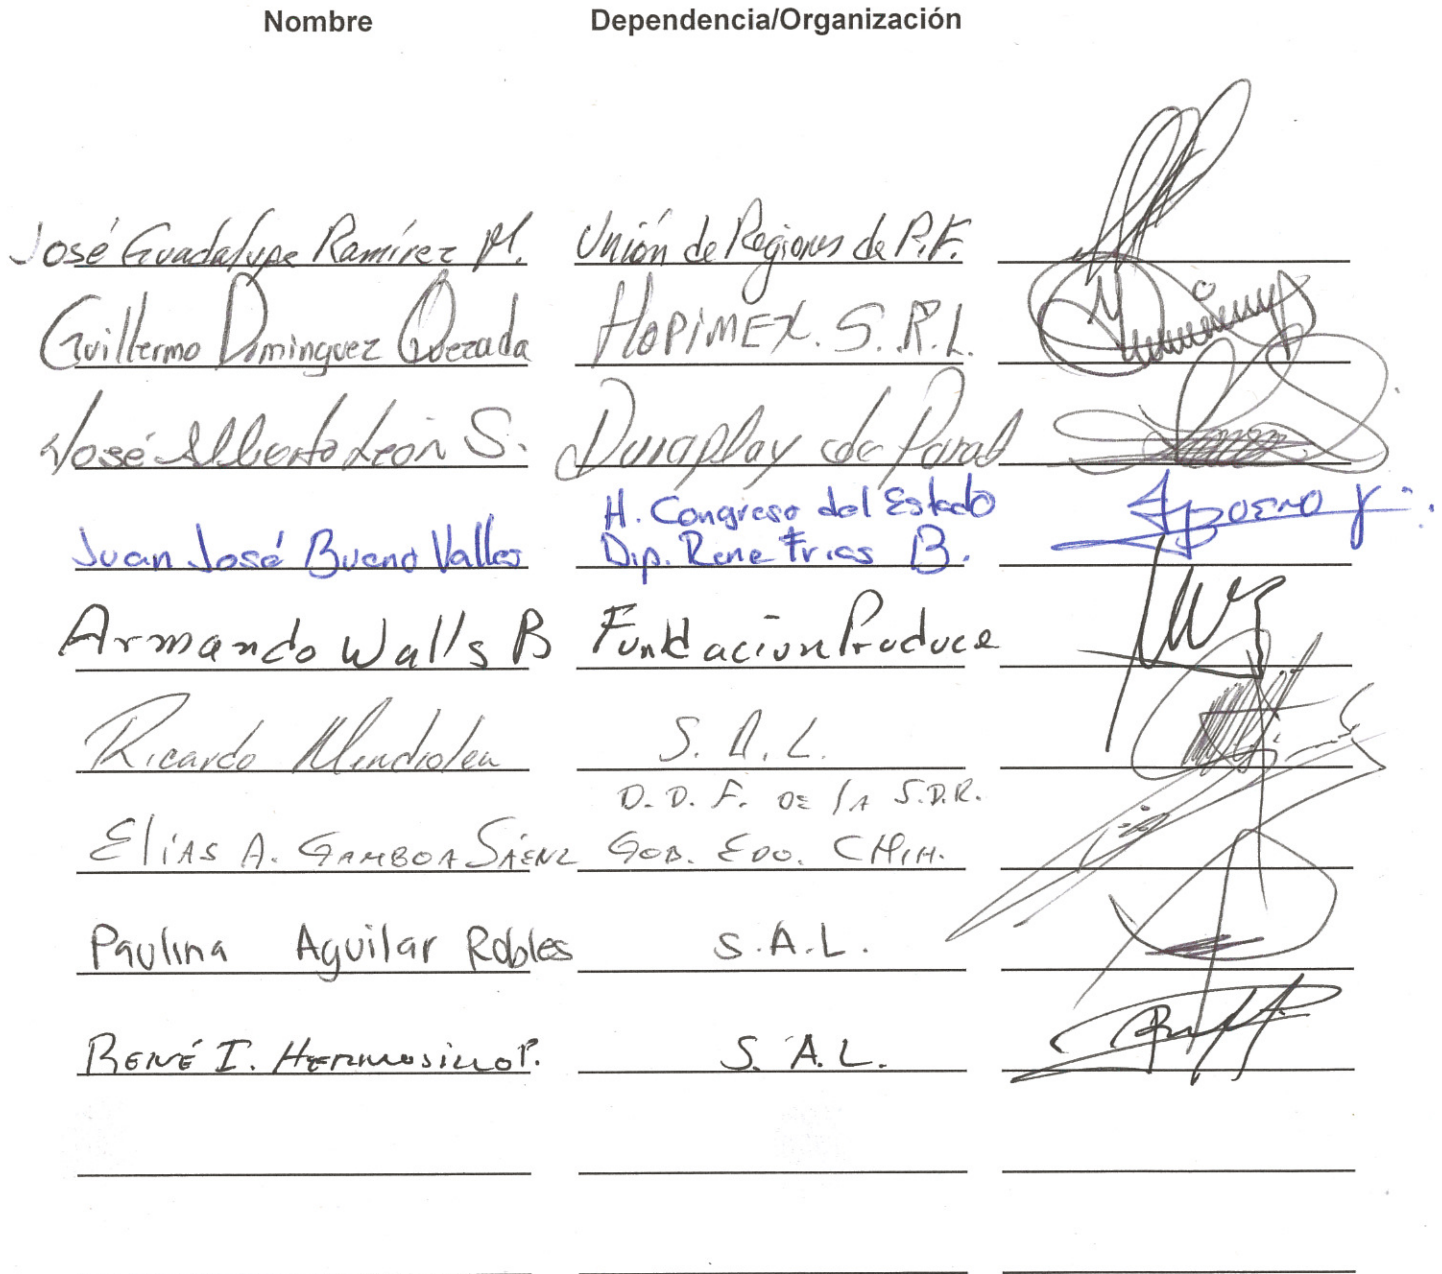 Nombre Dependencia/Organización
José Guadalupe Ramírez M. Unión de Regiones de P.F.
Guillermo Dominguez Quezada HOPIMEX. S. R.L.
José Alberto León S. Duraplay de Parral
H. Congreso del Estado
Juan José Bueno Valles Dip. Rene Frias B.
Armando Walls B Fundacion Produce
Ricardo Mendiolea S. A. L.
D. D. F. DE lA S.D.R.
EliAS A. GAMBOA SÁENZ GOB. EDO. CHIH.
Paulina Aguilar Robles S.A.L.
RENÉ I. HERMOSILLO P. S. A.L.